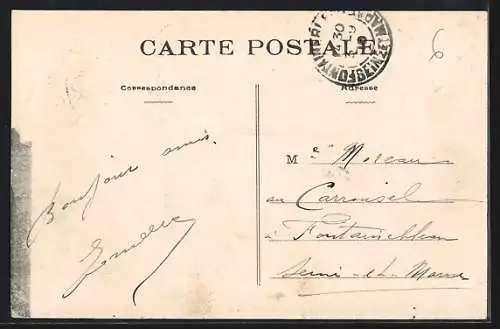 CARTE POSTALE
Correspondance
Adresse
6
Bonjour amis.
Mr Moreau
au Carrousel
à Fontainebleau
Seine-et-Marne